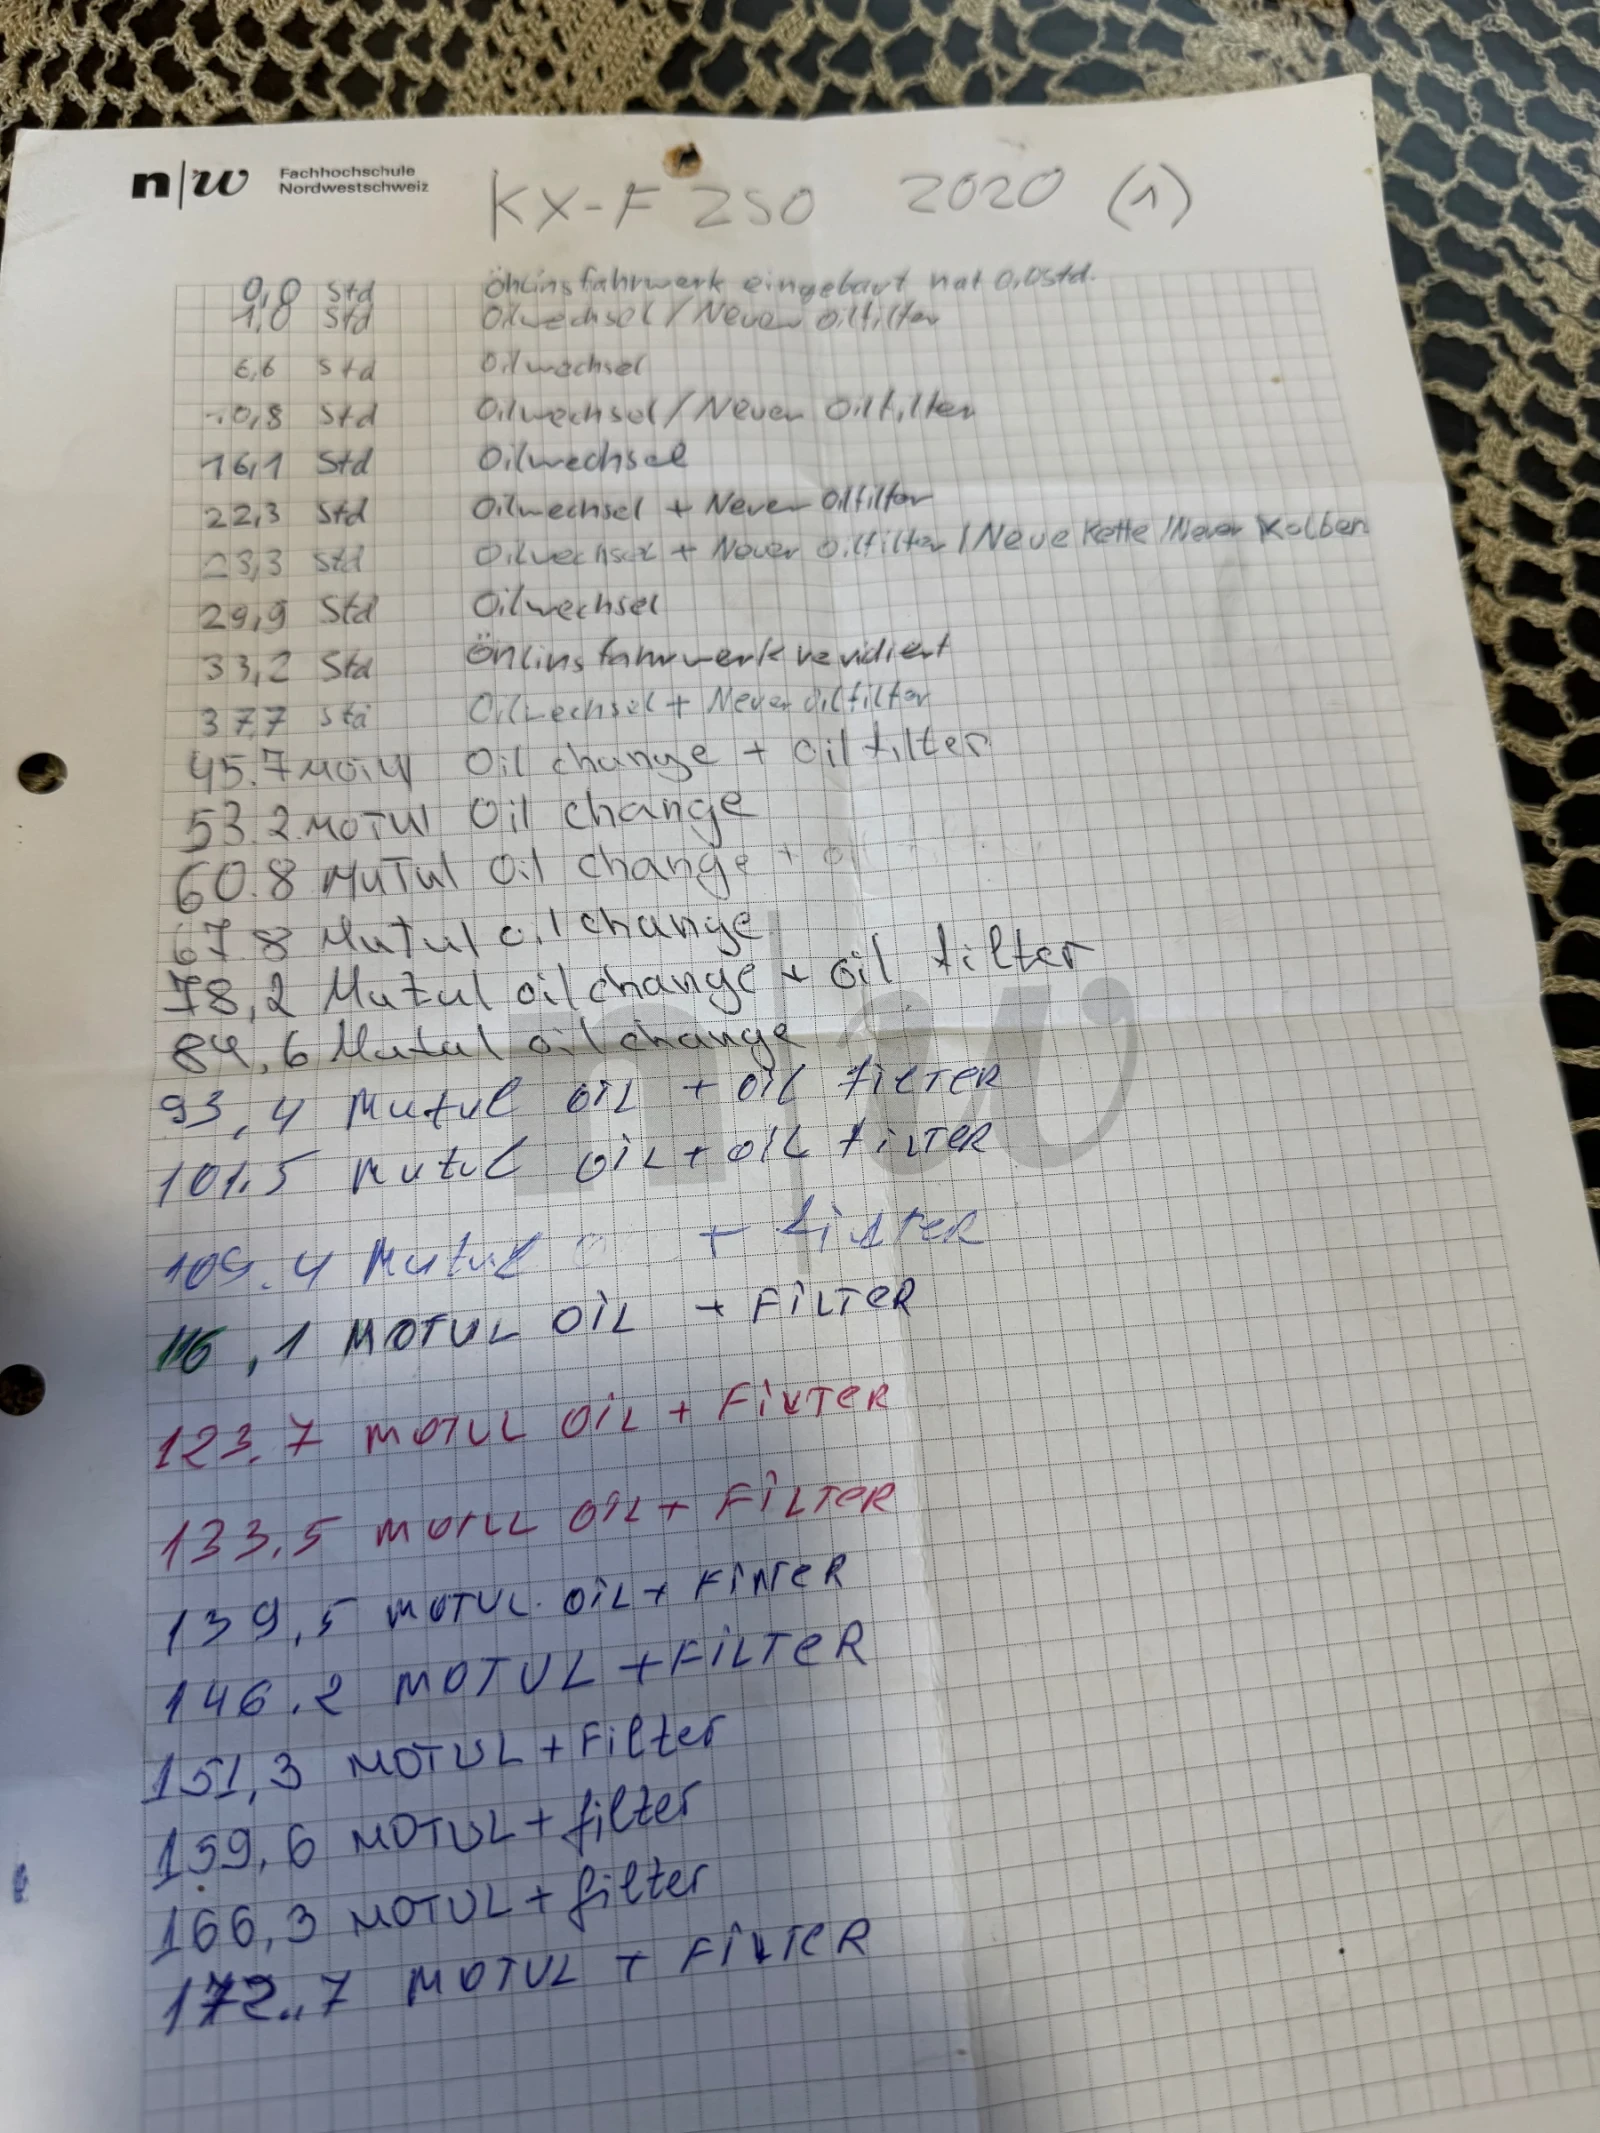 n|w Fachhochschule
Nordwestschweiz
KX-F 250 2020 (1)
0,0 Std Öhlins fahrwerk eingebaut hat 0,0std.
1,0 Std Oilwechsel/Neuer oilfilter
6,6 Std Oilwechsel
10,8 Std Oilwechsel/Neuer Oilfilter
16,1 Std Oilwechsel
22,3 Std Oilwechsel + Neuer Oilfilter
23,3 Std Oilwechsel + Neuer oilfilter / Neue Kette / Neuer Kolben
29,9 Std Oilwechsel
33,2 Std Öhlins fahrwerk revidiert
37,7 Std Oilwechsel + Neuer Oilfilter
45.7 MOTUl Oil change + oil filter
53.2 MOTUl Oil change
60.8 MuTul Oil change +
67.8 Mutul oil change
78,2 Mutul oil change + oil filter
84,6 Mutul oil change
93,4 Mutul OiL + OiL FiLTeR
101.5 Mutul OiL + OiL FiLTeR
109.4 Mutul + FiLTeR
116,1 MOTUL OiL + FiLTeR
123.7 MOTUL OiL + FiLTeR
133,5 MOTUL OiL + FiLTeR
139,5 MOTUL OiL + FiLTeR
146.2 MOTUL + FiLTeR
151,3 MOTUL + Filter
159,6 MOTUL + filter
166,3 MOTUL + filter
172.7 MOTUL + FiLTeR
n|w